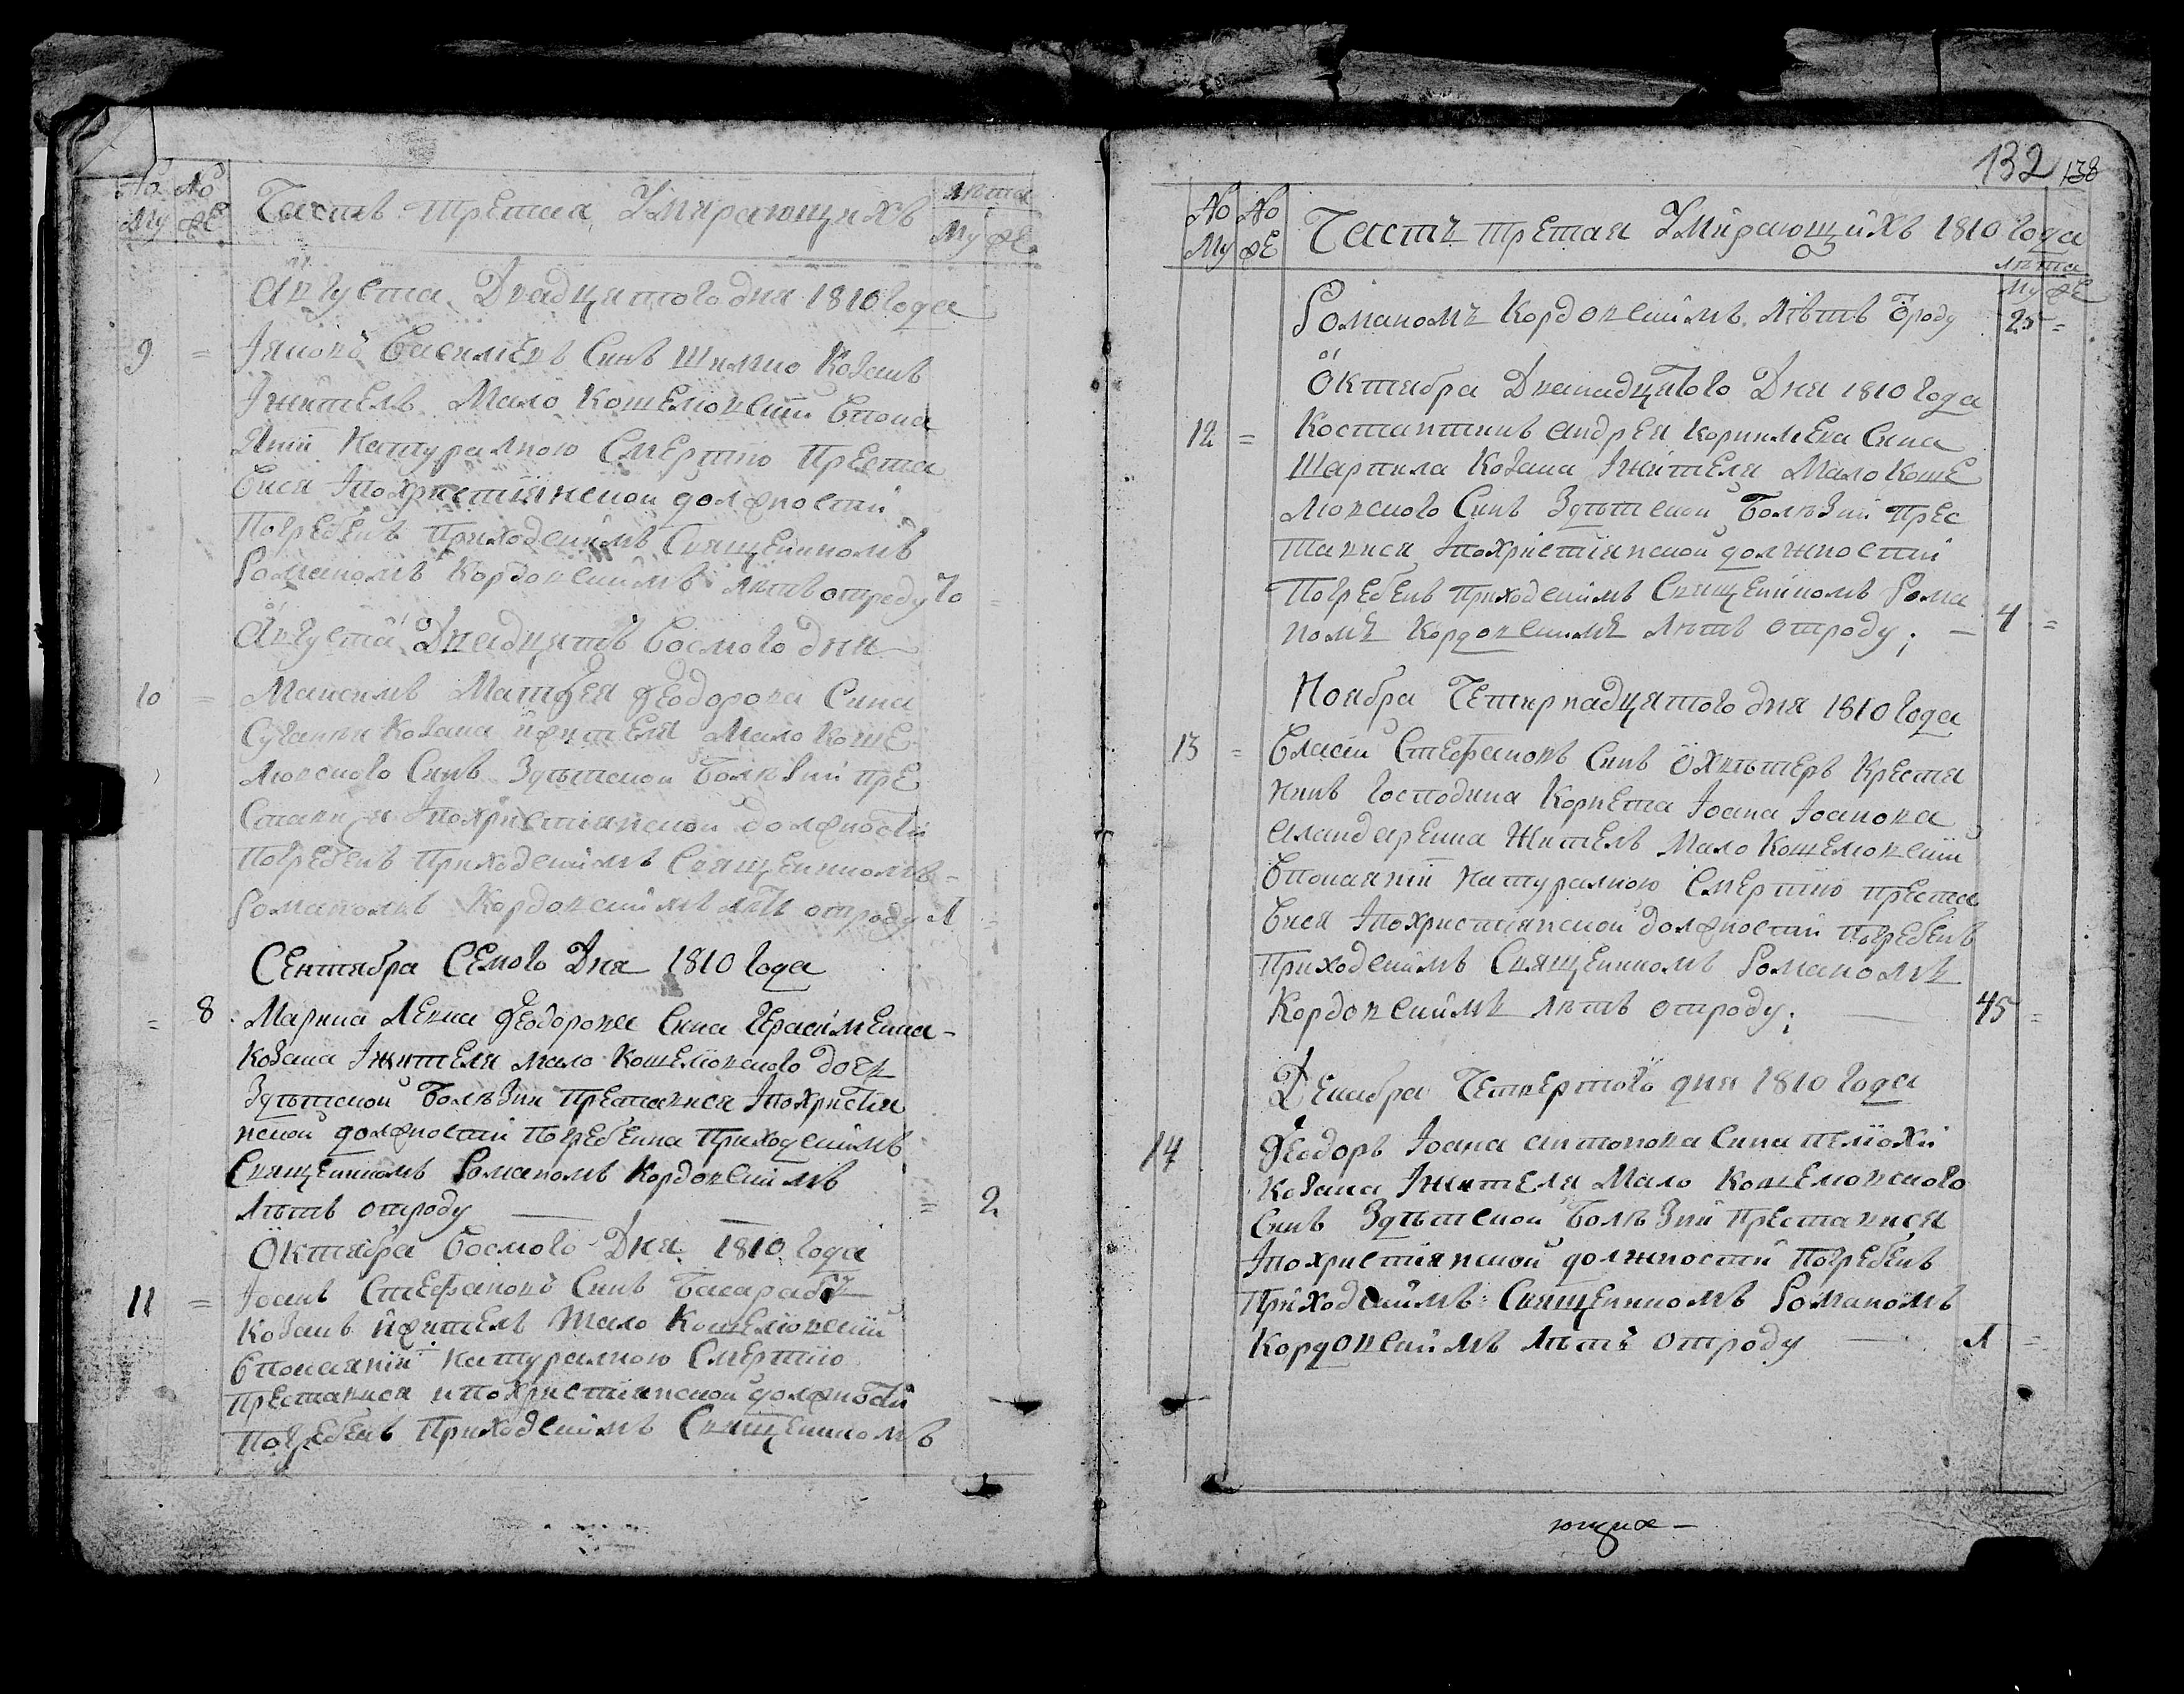 № № Часть третая Умирающихъ лѣта
Му Же Му Же
Августа Двадцятого дня 1810 года
9 = Іяковъ Василиевъ Синъ Козакъ
Їжитель Мало Кошелювский Впока
янии Натуралною Смертию Преста
вися Іпохристиянской должности
Погребенъ Приходскимъ Священникомъ
Романомъ Кордовскимъ лѣтъ отроду 70 =
Августа Двадцять Восмого дня
10 = Максимъ Матфея Феодорова Сина
Козака ижителя Мало Коше
лювского Синъ Здѣтской Болѣзни пре
ставися Іпохристиянской должности
Погребенъ Приходскимъ Священникомъ
Романомъ Кордовскимъ лѣтъ отроду 1 =
Сентября Семого Дня 1810 года
= 8 Марина Левка Феодорова Сина Герасименка
Козака Їжителя Мало Кошелювского дочь
Здѣтской Болѣзни Преставися Іпохристия
нской должности Погребенна Приходскимъ
Священникомъ Романомъ Кордовскимъ
Лѣтъ отроду = 2
Октября Восмого Дня 1810 года
11 = Іоанъ Стефановъ Синъ Басарабъ
Козакъ ижитель Мало Кошелювский
Впокаянии Натуралною Смертию
Преставися ипохристиянской должности
Погребенъ Приходскимъ Священникомъ
132 138
№ № Часть третая Умирающихъ 1810 года
Му Же лѣта
Му Же
Романомъ Кордовскимъ Лѣтъ отроду 25 =
Октября Дванадцятого Дня 1810 года
12 = Костантинъ Андрея Корниліева Сина
Шарпила Козака Їжителя Мало Коше
лювского Синъ Здѣтской Болѣзни Прес
тавися Іпохристиянской должности
Погребенъ Приходскимъ Священникомъ Рома
номъ Кордовскимъ Лѣтъ отроду; — 4 =
Ноября Четирнадцятого дня 1810 года
13 = Власій Стефановъ Синъ Крестя
нинъ Господина Корнета Іоана Іоанова
Жителъ Мало Кошелювский
Впокаянии Натуралною Смертию преста
вися Іпохристиянской должности Погребенъ
Приходскимъ Священникомъ Романомъ
Кордовскимъ Лѣтъ отроду; 45 =
Декабря Четвертого дня 1810 года
14 Феодоръ Іоана Антонова Сина
Козака Їжителя Мало Кошелювского
Синъ Здѣтской Болѣзни Преставися
Іпохристиянской должности Погребенъ
Приходскимъ Священникомъ Романомъ
Кордовскимъ Лѣтъ отроду — 1 =
ющих —